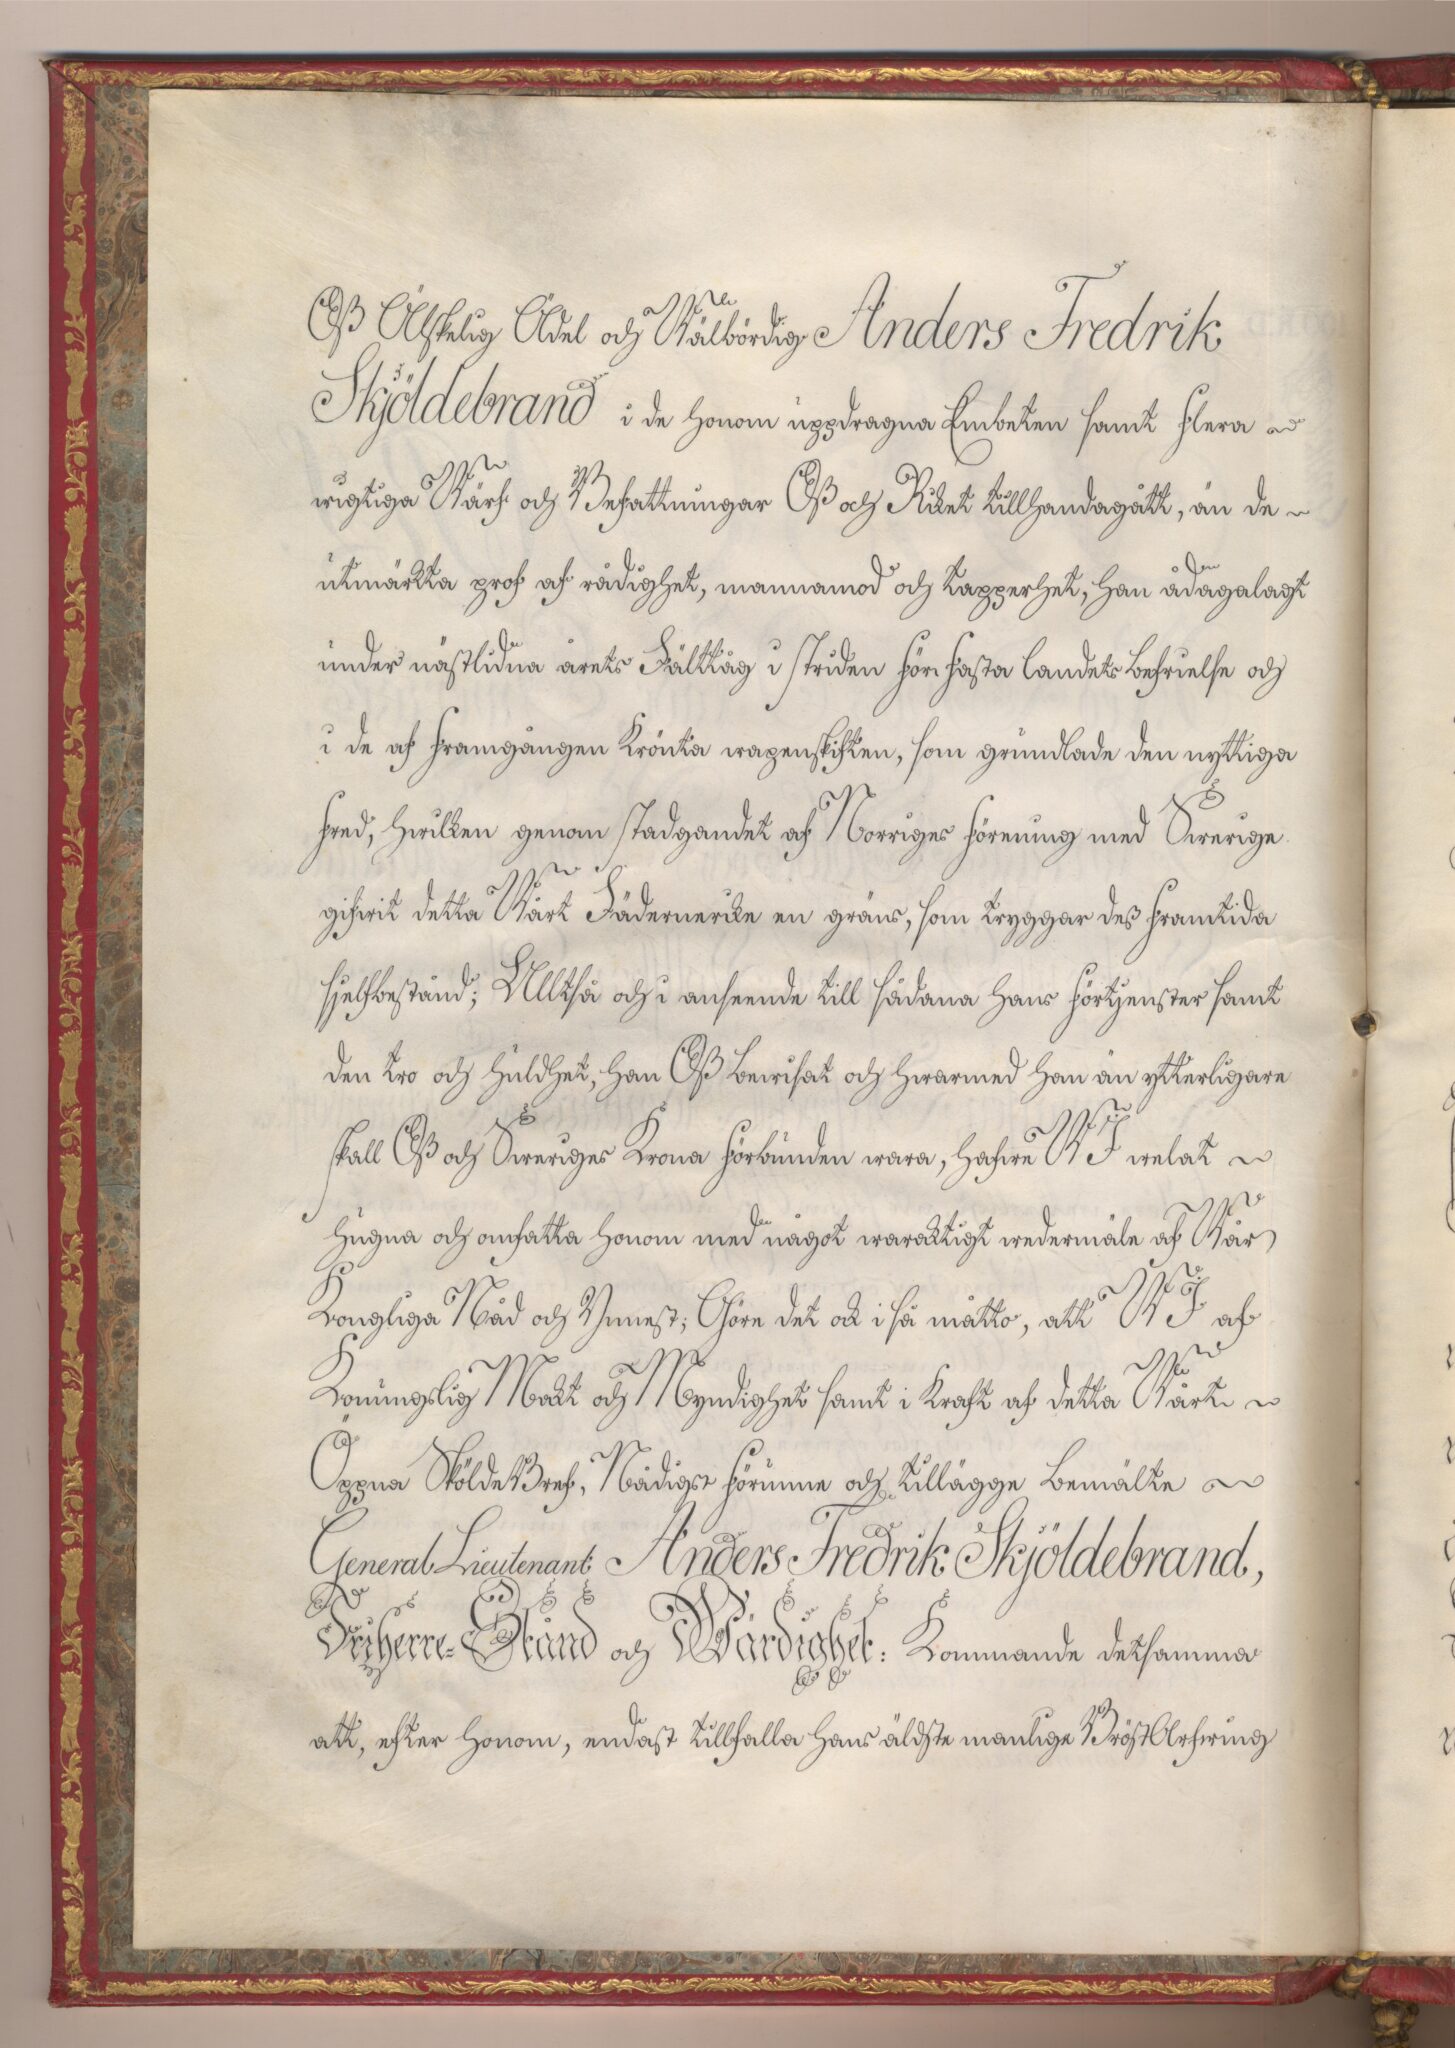 Oß Älskelig Ädel och Wälbördig Anders Fredrik
Skjöldebrand i de honom uppdragna Embeten samt flera
wigtiga Wärf och Befattningar Oß och Riket tillhandagått, än de
utmärkta prof af rådighet, mannamod och tapperhet, han ådagalagt
under nästlidna årets Fälttåg i striden för fasta landets befrielse och
i de af framgången krönta wapenskiften, som grundlade den nyttiga
fred, hwilken genom stadgandet af Norriges förening med Swerige
gifwit detta Wårt Fädernerike en gräns, som tryggar deß framtida
sjelfbestånd; Alltså och i anseende till sådana hans förtjenster samt
den tro och huldhet, han Oß bewisat och hwarmed han än ytterligare
skall Oß och Sweriges Krona förbunden wara, hafwe WJ welat
hugna och omfatta honom med något waraktigt wedermäle af Wår
Kongliga Nåd och Ynnest; Göre det ock i så måtto, att WJ af
Konungslig Makt och Myndighet samt i kraft af detta Wårt
Öppna SköldeBref, Nådigst förunne och tillägge bemälte
General Lieutenant Anders Fredrik Skjöldebrand,
Friherre-Stånd och Wärdighet: Kommande detsamma
att, efter honom, endast tillfalla hans äldste manlige BröstArfwing